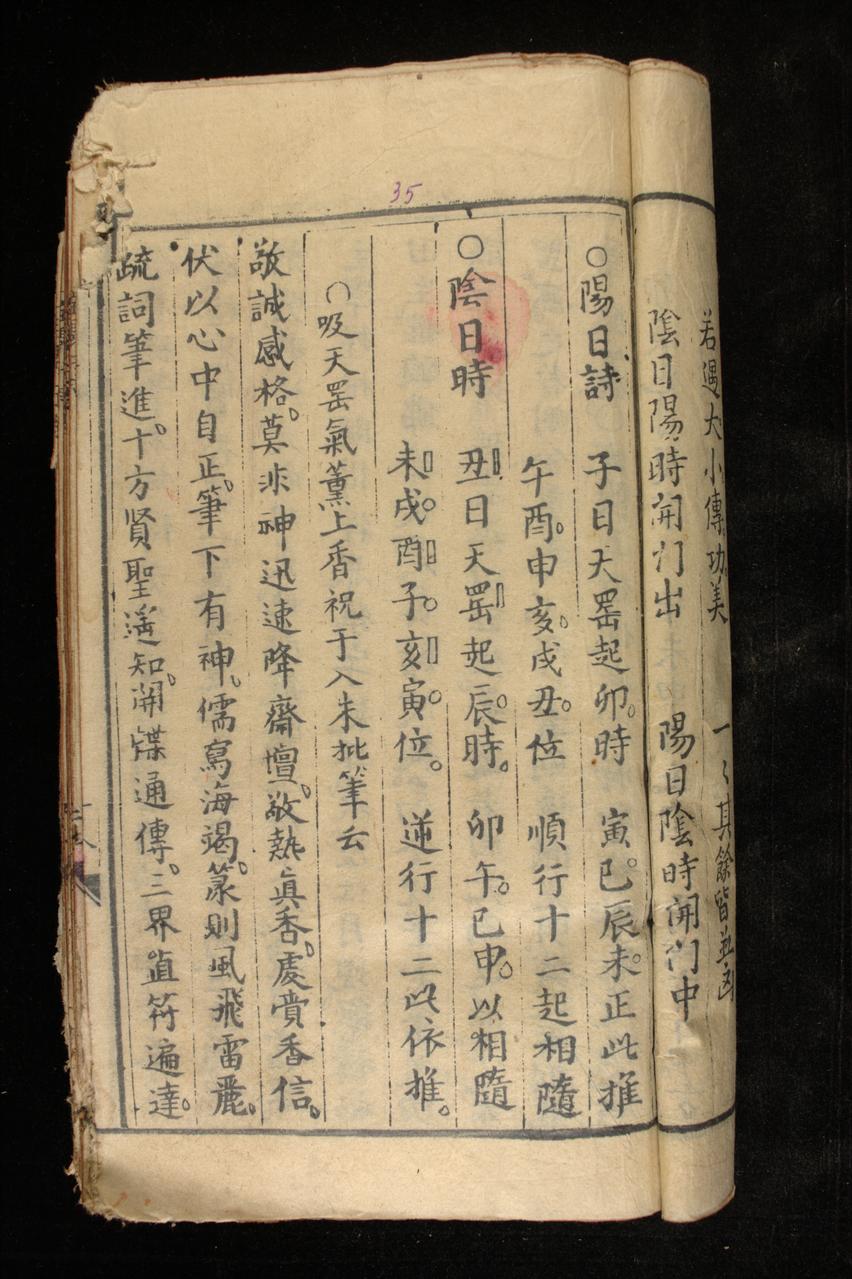 若遇大小傳功美 一々其餘皆並凶
陰日陽時開门出 陽日陰時開门中
35
○陽日詩 子日天罡起卯。時 寅。巳辰未。正此推
午酉。申亥。戌丑。位 順行十二起相隨
○陰日時 丑日天罡起辰。時。 卯午。巳申。以相隨
未戌。酉子。亥寅。位。 逆行十二此依推。
○吸天罡氣薰上香祝于入朱批筆云
敬誠感格。莫非神迅速降齋壇。敬熱真香。虔賫香信。
伏以心中自正。筆下有神。儒寫海竭。篆則風飛雷麗。
疏詞筆進。十方賢聖遙知。開牒通傳。三界直符遍達。